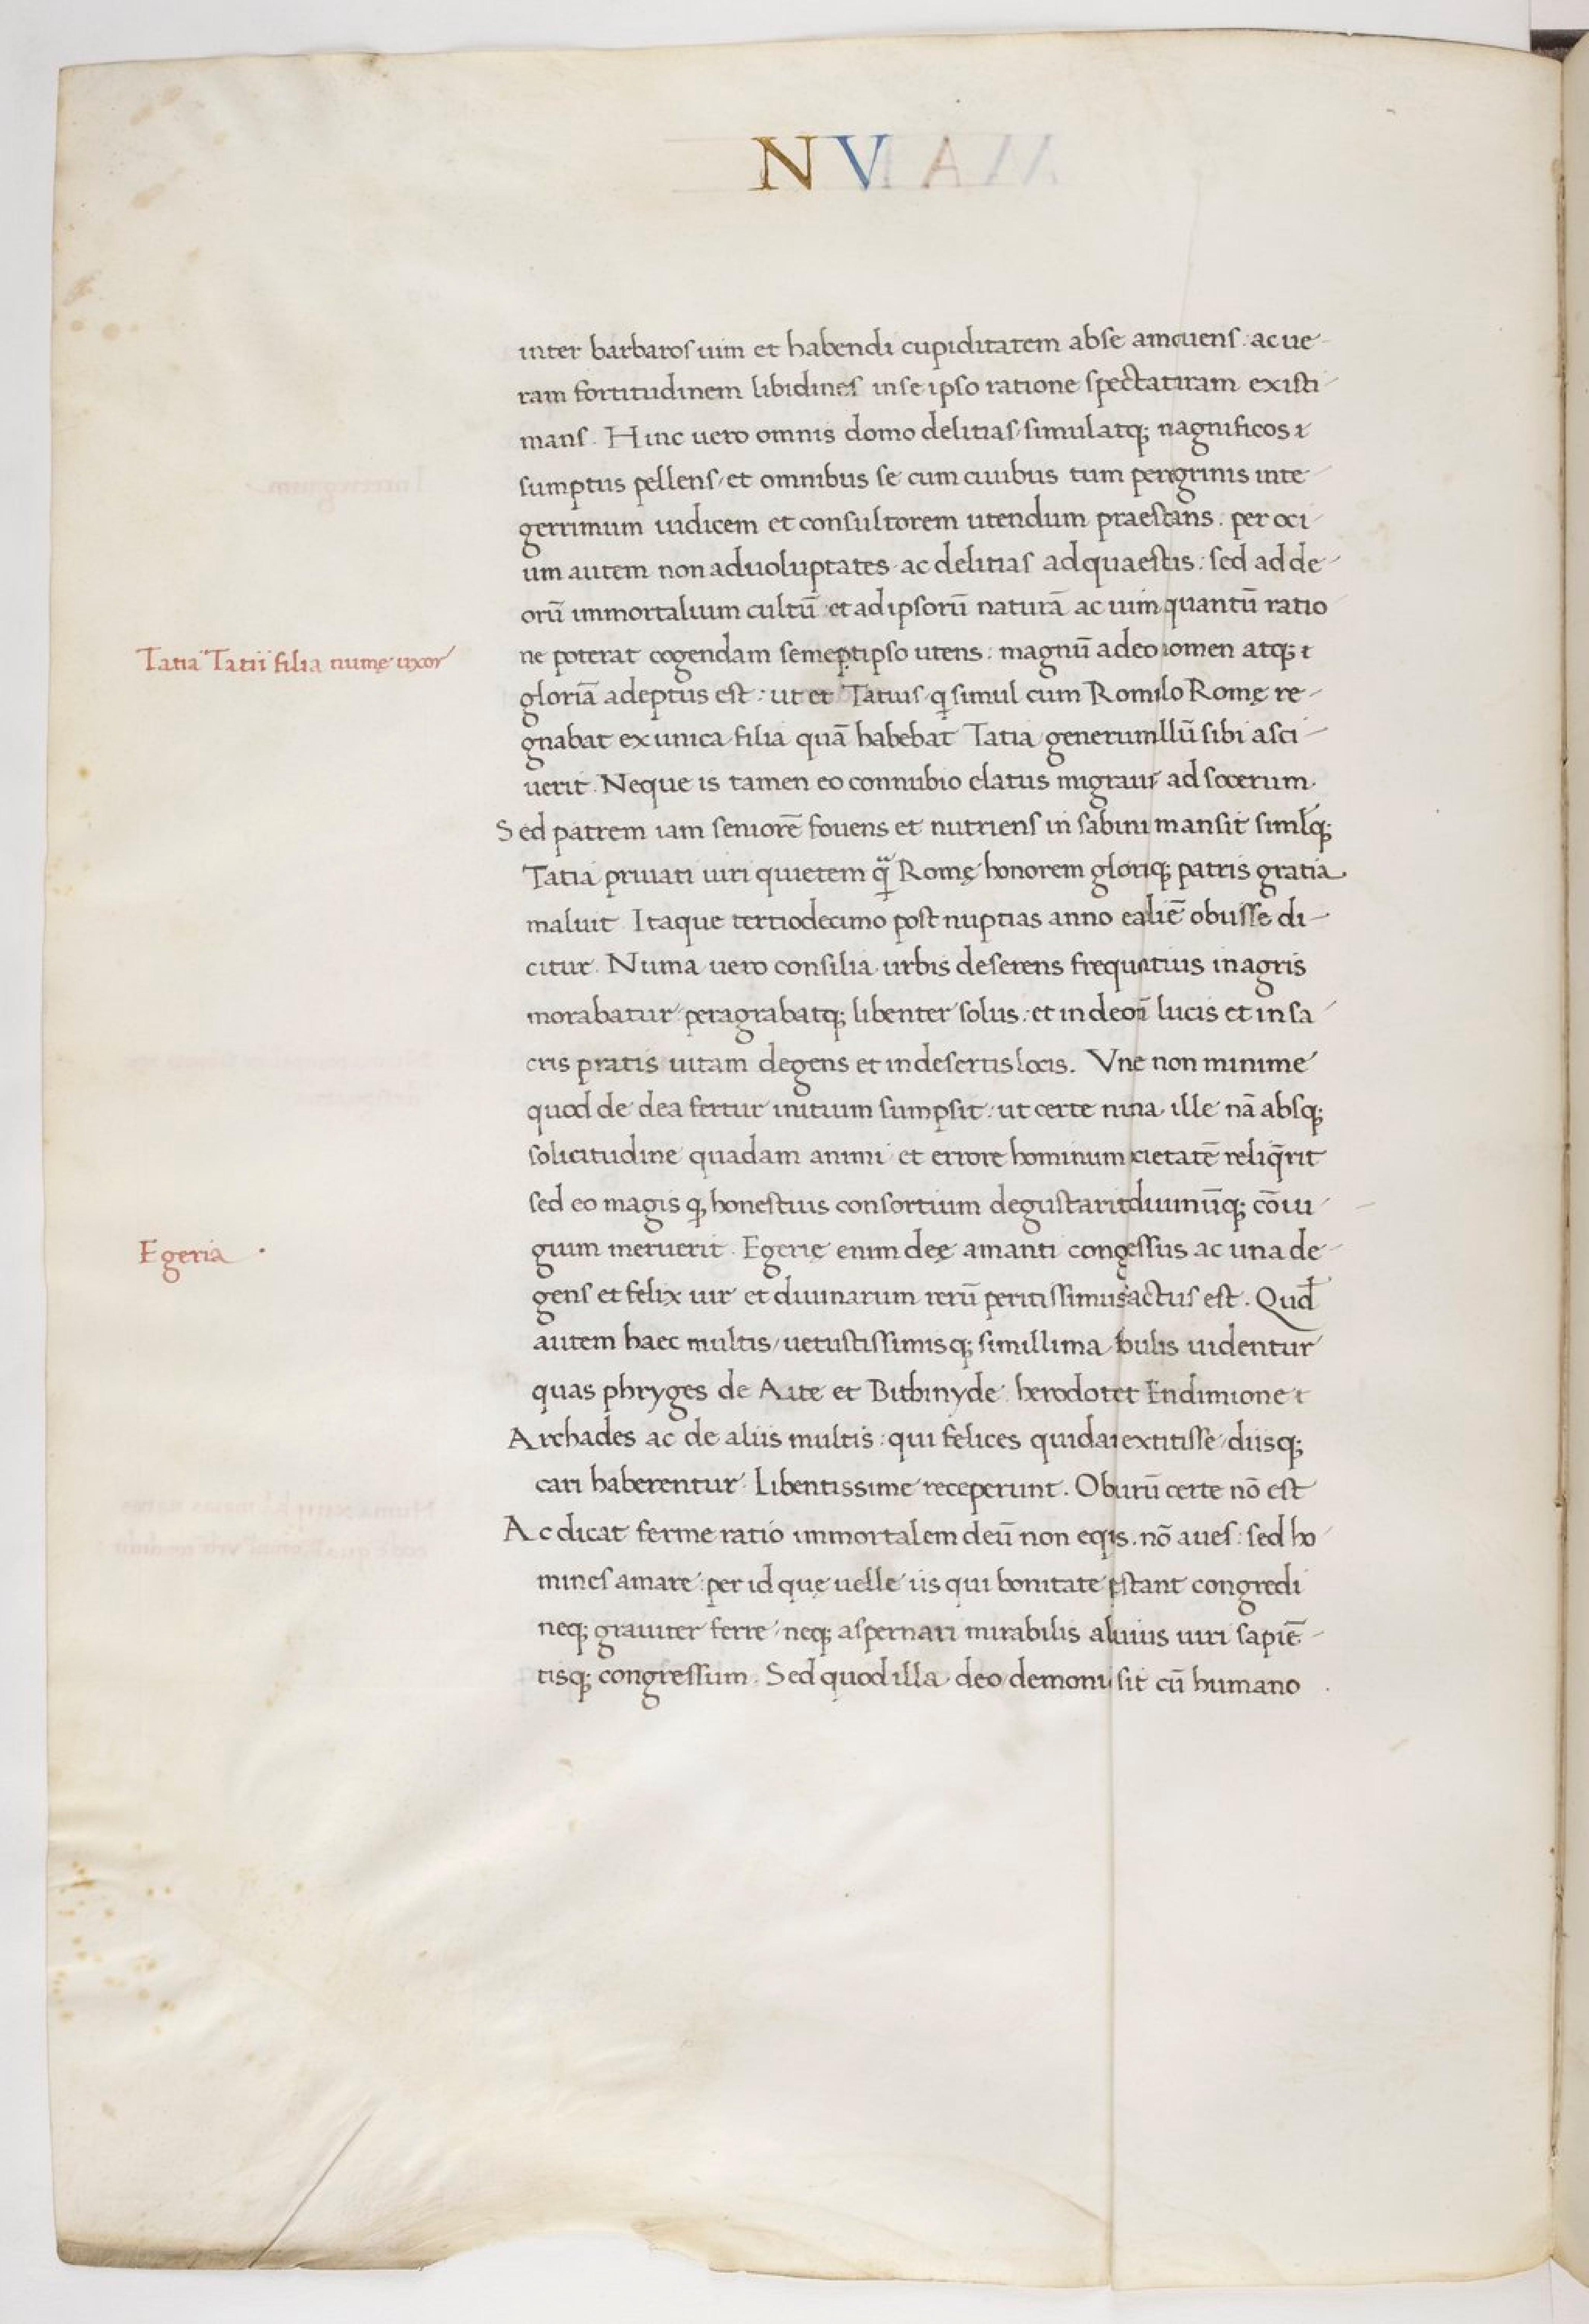 NV
inter barbaros uim et habendi cupiditatem abse amouens: ac ue-
ram fortitudinem libidines inse ipso ratione spectaturam existi-
mans. Hinc uero omnis domo delitias simulatq; magnificos &
sumptus pellens, et omnibus se cum ciuibus tum peregrinis inte-
gerrimum iudicem et consultorem utendum praestans. per oci-
um autem non aduoluptates ac delitias adquaestis: sed ad de-
orū immortalium cultū et ad ipsorū naturā ac uim quantū ratio
Tatia Tatii filia numę uxor
ne poterat cogendam semeptipso utens: magnū adeo nomen atq; &
gloriā adeptus est: ut et Tatius q simul cum Romulo Romę re-
gnabat ex unica filia quā habebat Tatia generum illū sibi asci-
uerit. Neque is tamen eo connubio elatus migrauit ad socerum.
Sed patrem iam seniorē fouens et nutriens in sabini mansit simlq;
Tatia priuati uiri quietem qꝫ Romę honorem glorięq; patris gratia
maluit. Itaque tertiodecimo post nuptias anno ea obiisse di-
citur. Numa uero consilia urbis deserens frequentius inagris
morabatur peragrabatq; libenter solus: et in deorū lucis et in sa-
cris pratis uitam degens et in desertis locis. Vnde non minime
quod de dea fertur initium sumpsit: ut certe numa ille nā absq;
solicitudine quadam animi et errore hominum societatē reliq̄rit
sed eo magis q honestius consortium degustarit diuinūq; cōiu-
Egeria
gium meruerit. Egerię enim deę amanti congressus ac una de-
gens et felix uir et diuinarum rerū peritissimus factus est. Qud
autem haec multis, uetustissimisq; simillima fabulis uidentur
quas phryges de Aite et Bithinyde herodotet Endimione &
Archades ac de aliis multis: qui felices quidam extitisse, diisq;
cari haberentur. Libentissime receperunt. Obscurū certe nō est
Ac dicat ferme ratio immortalem deū non equis. nō aues: sed ho-
mines amare: per id quę uelle iis qui bonitate p̄stant congredi
neq; grauiter ferre, neq; aspernari mirabilis alicuius uiri sapiē-
tisq; congressum. Sed quod illa deo demoni sit cū humano